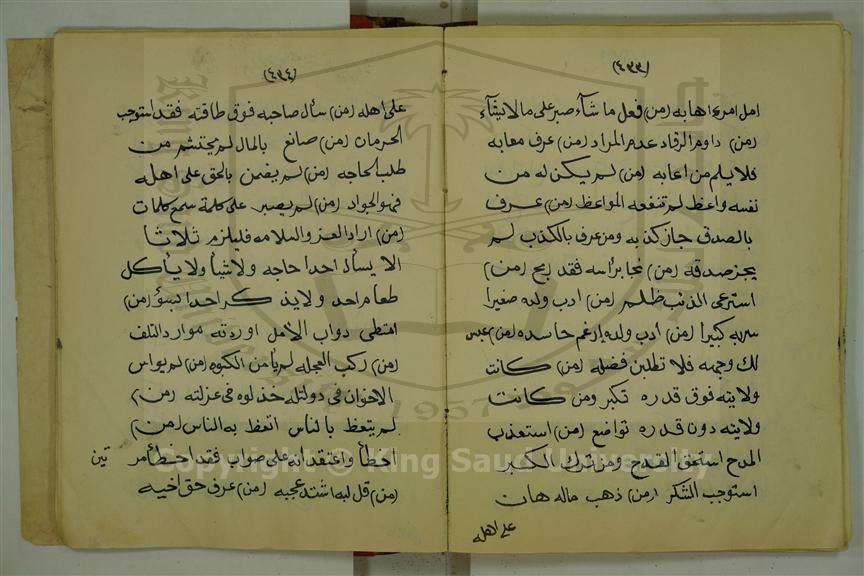 (٤٣٣)
امل امرئ اهابه (من) فعل ما شآء صبر على مالا يشآء
(من) داوم الرقاد عدم المراد (من) عرف معابه
فلا يلم من اعابه (من) لم يكن له من
نفسه واعظ لم تنفعه المواعظ (من) عرف
بالصدق جاز كذبه ومن عرف بالكذب لم
يجز صدقه (من) نجا براسه فقد ربح (من)
استرعى الذئب ظلم (من) ادب ولده صغيرا
سر به كبيرا (من) ادب ولده ارغم حاسده (من) عبس
لك وجهه فلا تطلبن فضله (من) كانت
ولايته فوق قدره تكبر ومن كانت
ولايته دون قدره تواضع (من) استعذب
المدح استحق القدح ومن ترك الكبر
استوجب الشكر (من) ذهب ماله هان
على اهله
(٤٣٤)
على اهله (من) سأل صاحبه فوق طاقته فقد استوجب
الحرمان (من) صانع بالمال لم يحتشم من
طلب الحاجه (من) لم يضن بالحق على اهله
فهو الجواد (من) لم يصبر على كلمة سمع كلمات
(من) اراد العز والسلامه فليلزم ثلاثا
الا يسأل احدا حاجه ولا شيأ ولا يأكل
طعام احد ولا يذكر احدا بسؤ (من)
امتطى دواب الامل اوردته موارد التلف
(من) ركب العجله لم يأمن الكبوه (من) لم يواس
الاخوان فى دولته خذلوه فى عزلته (من)
لم يتعظ بالناس اتعظ به الناس (من)
اخطأ واعتقد انه على صواب فقد اخطأ مرتين
(من) قل لبه اشتد عجبه (من) عرف حق اخيه
Copyright © King Saud University
1957